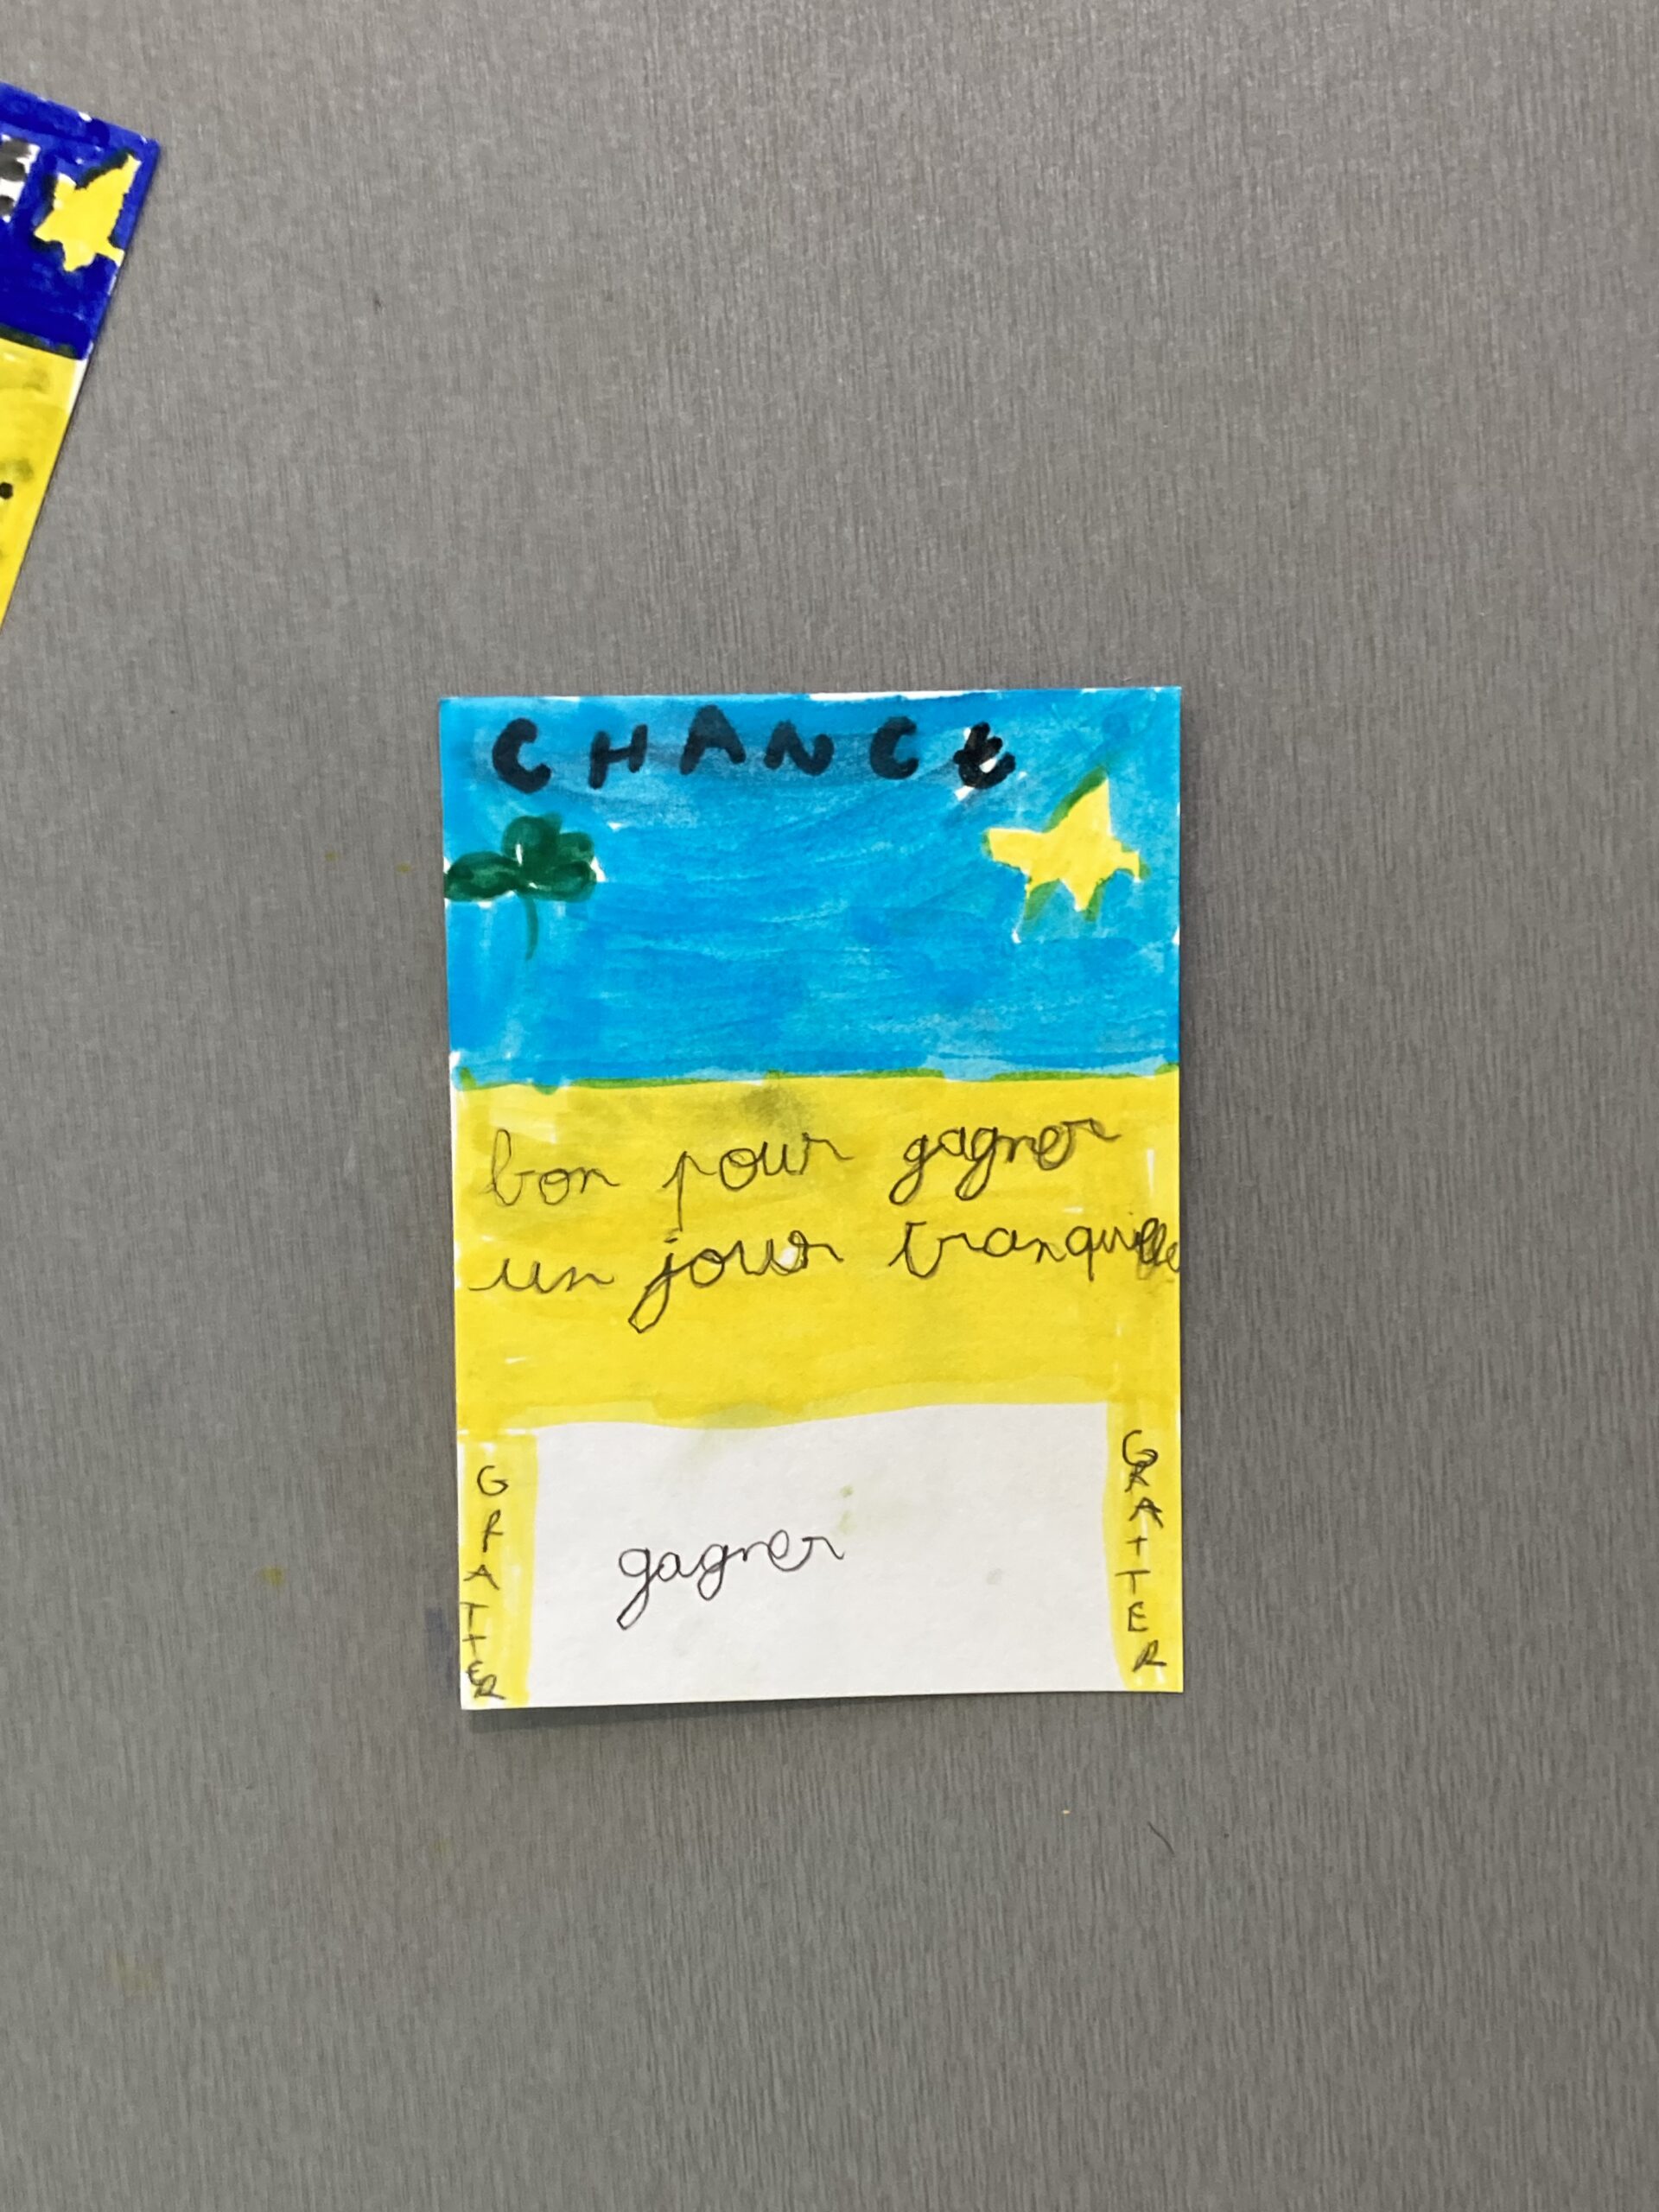 CHANCE
bon pour gagner
un jour tranquille
GRATTER
gagner
GRATTER